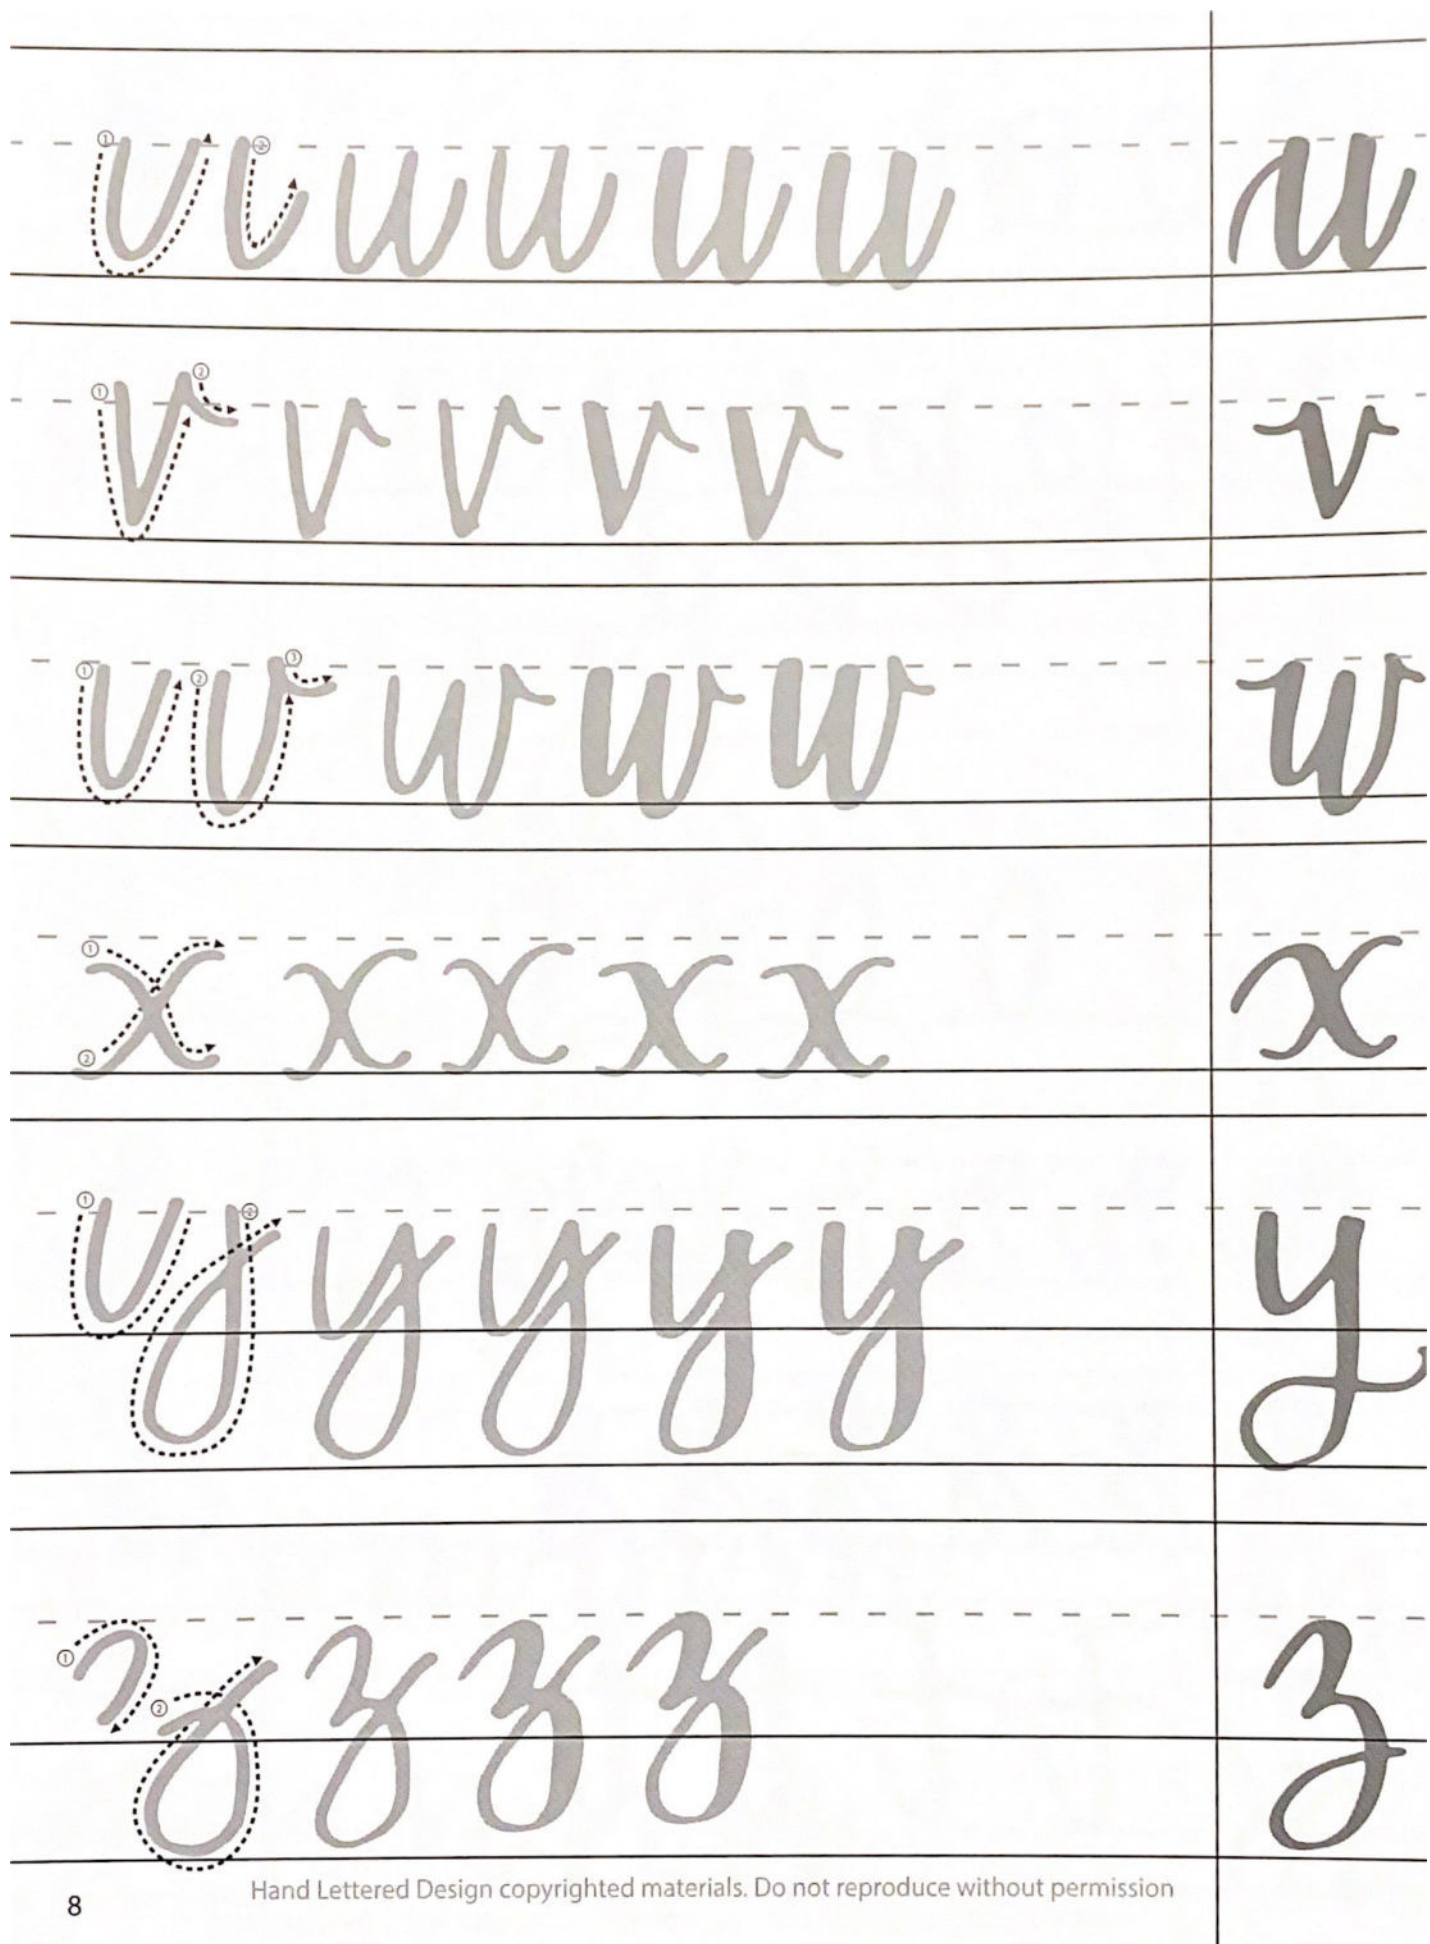 ① ② u u u u u
① ② v v v v v
① ② ③ w w w w
① ② x x x x x x
① ② y y y y y
① ② z z z z
8 Hand Lettered Design copyrighted materials. Do not reproduce without permission